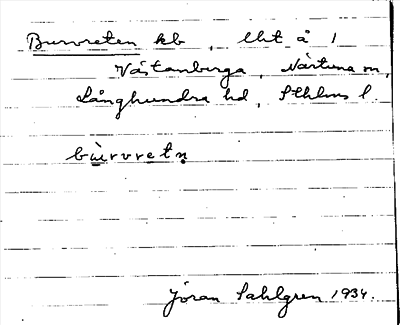 Burvreten kb, Ulit å 1
Västanberga, Närtuna sn,
Långhundra hd, Sthlms l.
bu̱rvretṇ
Jöran Sahlgren 1934.